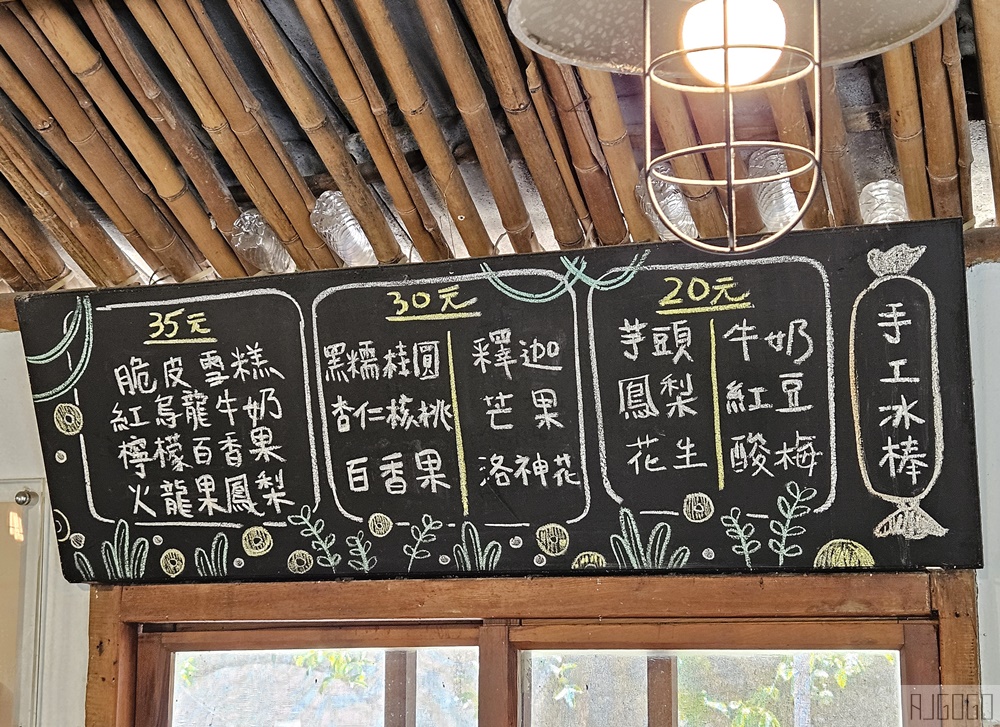 35元
脆皮雪糕
紅烏龍牛奶
檸檬百香果
火龍果鳳梨
30元
黑糯桂圓
杏仁核桃
百香果
釋迦
芒果
洛神花
20元
芋頭
鳳梨
花生
牛奶
紅豆
酸梅
手工冰棒
AJGOGO